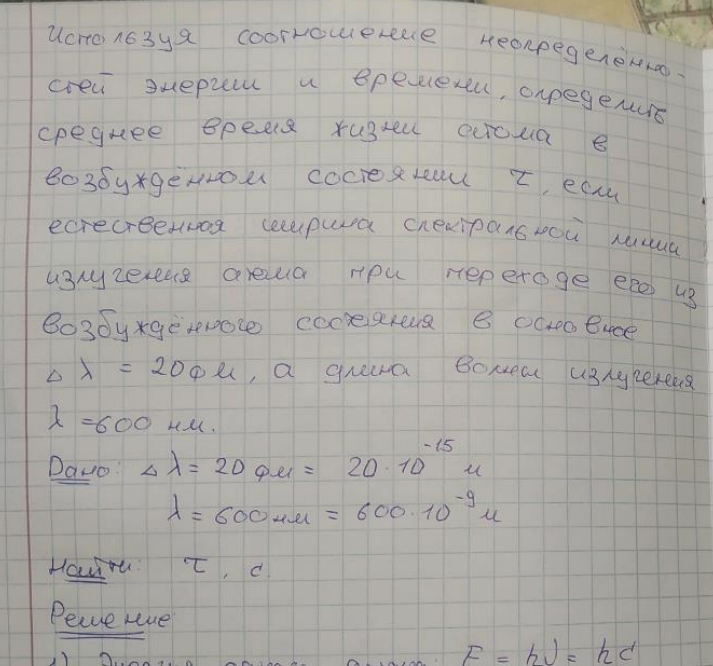 Используя соотношение неопределённо-
стей энергии и времени, определить
среднее время жизни атома в
возбуждённом состоянии τ, если
естественная ширина спектральной линии
излучения атома при переходе его из
возбуждённого состояния в основное
Δλ = 20 фм, а длина волны излучения
λ = 600 нм.
Дано: Δλ = 20 фм = 20·10⁻¹⁵ м
λ = 600 нм = 600·10⁻⁹ м
Найти: τ, с
Решение
1) Энергия E = hν = hc